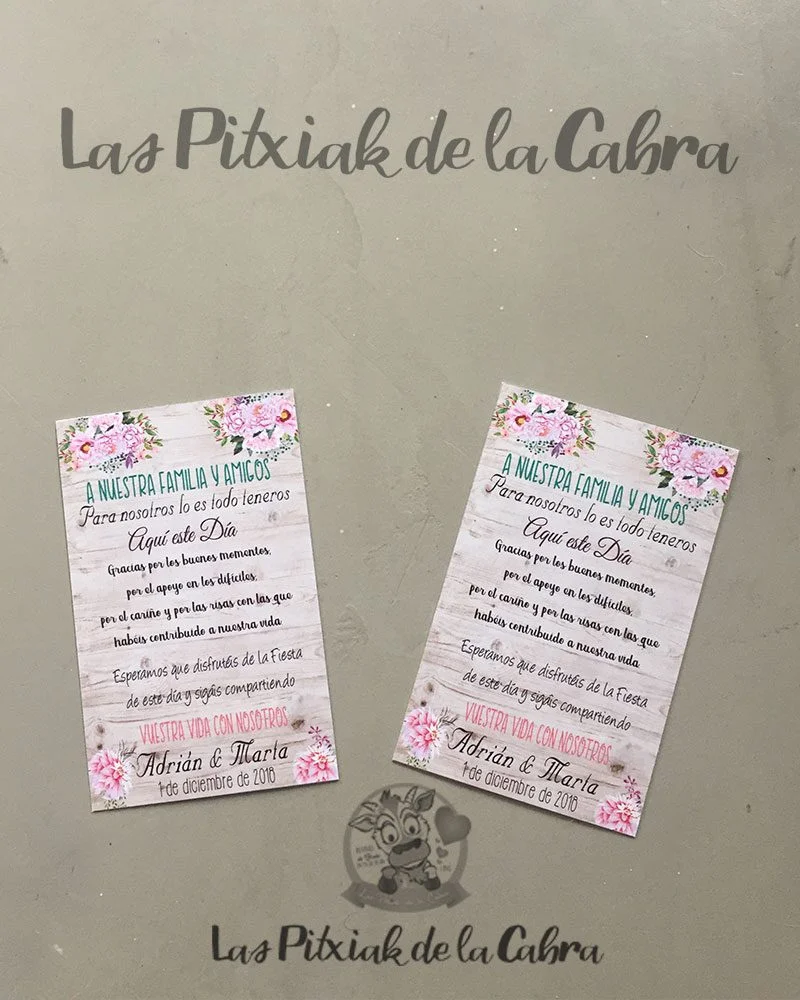 Las Pitxiak de la Cabra
A NUESTRA FAMILIA Y AMIGOS
Para nosotros lo es todo teneros
Aquí este Día
Gracias por los buenos momentos,
por el apoyo en los difíciles,
por el cariño y por las risas con las que
habéis contribuido a nuestra vida
Esperamos que disfrutéis de la Fiesta
de este día y sigáis compartiendo
VUESTRA VIDA CON NOSOTROS
Adrián & Marta
1 de diciembre de 2018
A NUESTRA FAMILIA Y AMIGOS
Para nosotros lo es todo teneros
Aquí este Día
Gracias por los buenos momentos,
por el apoyo en los difíciles,
por el cariño y por las risas con las que
habéis contribuido a nuestra vida
Esperamos que disfrutéis de la Fiesta
de este día y sigáis compartiendo
VUESTRA VIDA CON NOSOTROS
Adrián & Marta
1 de diciembre de 2018
Las Pitxiak de la Cabra